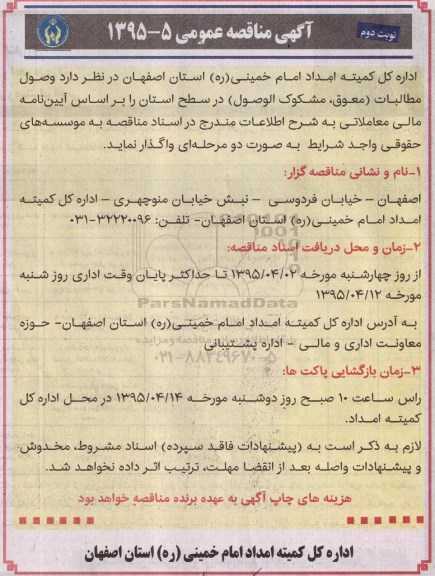 نوبت دوم
آگهی مناقصه عمومی ۵-۱۳۹۵
اداره کل کمیته امداد امام خمینی(ره) استان اصفهان در نظر دارد وصول
مطالبات (معوق، مشکوک الوصول) در سطح استان را بر اساس آیین‌نامه
مالی معاملاتی به شرح اطلاعات مندرج در اسناد مناقصه به موسسه‌های
حقوقی واجد شرایط به صورت دو مرحله‌ای واگذار نماید.
۱-نام و نشانی مناقصه گزار:
اصفهان - خیابان فردوسی - نبش خیابان منوچهری - اداره کل کمیته
امداد امام خمینی(ره) استان اصفهان- تلفن: ۳۲۲۲۰۰۹۶-۰۳۱
۲-زمان و محل دریافت اسناد مناقصه:
از روز چهارشنبه مورخه ۱۳۹۵/۰۴/۰۲ تا حداکثر پایان وقت اداری روز شنبه
مورخه ۱۳۹۵/۰۴/۱۲
به آدرس اداره کل کمیته امداد امام خمینی(ره) استان اصفهان- حوزه
معاونت اداری و مالی - اداره پشتیبانی
ParsNamadData
۰۲۱-۸۸۳۴۹۶۷۰-۵
۳-زمان بازگشایی پاکت ها:
راس ساعت ۱۰ صبح روز دوشنبه مورخه ۱۳۹۵/۰۴/۱۴ در محل اداره کل
کمیته امداد.
لازم به ذکر است به (پیشنهادات فاقد سپرده) اسناد مشروط، مخدوش
و پیشنهادات واصله بعد از انقضا مهلت، ترتیب اثر داده نخواهد شد.
هزینه های چاپ آگهی به عهده برنده مناقصه خواهد بود
اداره کل کمیته امداد امام خمینی (ره) استان اصفهان